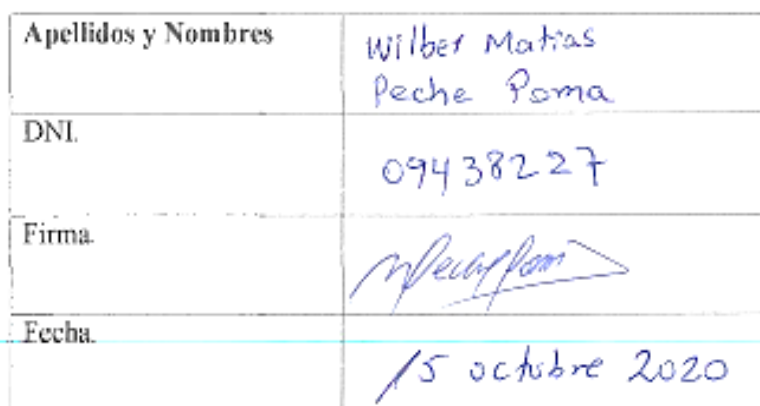 Apellidos y Nombres
Wilber Matias
Peche Poma
DNI.
09438227
Firma.
Fecha.
15 octubre 2020